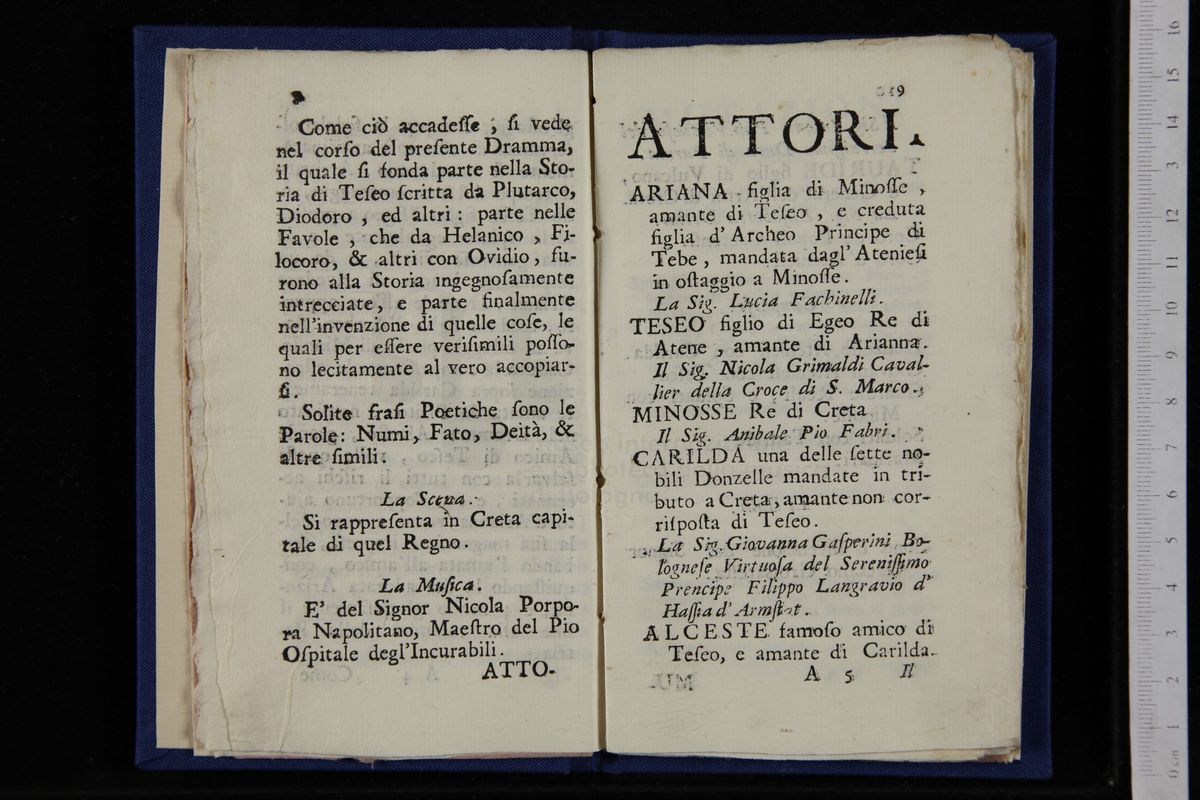 Come ciò accadeſſe, ſi vede
nel corſo del preſente Dramma,
il quale ſi fonda parte nella Sto-
ria di Teſeo ſcritta da Plutarco,
Diodoro, ed altri: parte nelle
Favole, che da Helanico, Fi-
locoro, & altri con Ovidio, fu-
rono alla Storia ingegnoſamente
intrecciate, e parte finalmente
nell'invenzione di quelle coſe, le
quali per eſſere veriſimili poſſo-
no lecitamente al vero accopiar-
ſi.
Solite fraſi Poetiche ſono le
Parole: Numi, Fato, Deità, &
altre ſimili.
La Scena.
Si rappreſenta in Creta capi-
tale di quel Regno.
La Muſica.
E' del Signor Nicola Porpo-
ra Napolitano, Maeſtro del Pio
Oſpitale degl'Incurabili.
ATTO-
9
ATTORI.
ARIANA figlia di Minoſſe,
amante di Teſeo, e creduta
figlia d'Archeo Principe di
Tebe, mandata dagl'Atenieſi
in oſtaggio a Minoſſe.
La Sig. Lucia Fachinelli.
TESEO figlio di Egeo Re di
Atene, amante di Arianna.
Il Sig. Nicola Grimaldi Caval-
lier della Croce di S. Marco.
MINOSSE Re di Creta
Il Sig. Anibale Pio Fabri.
CARILDA una delle ſette no-
bili Donzelle mandate in tri-
buto a Creta, amante non cor-
riſpoſta di Teſeo.
La Sig. Giovanna Gaſperini Bo-
logneſe Virtuoſa del Sereniſſimo
Prencipe Filippo Langravio d'
Haſſia d'Armſtat.
ALCESTE famoſo amico di
Teſeo, e amante di Carilda.
A 5 Il
0 cm 1 2 3 4 5 6 7 8 9 10 11 12 13 14 15 16